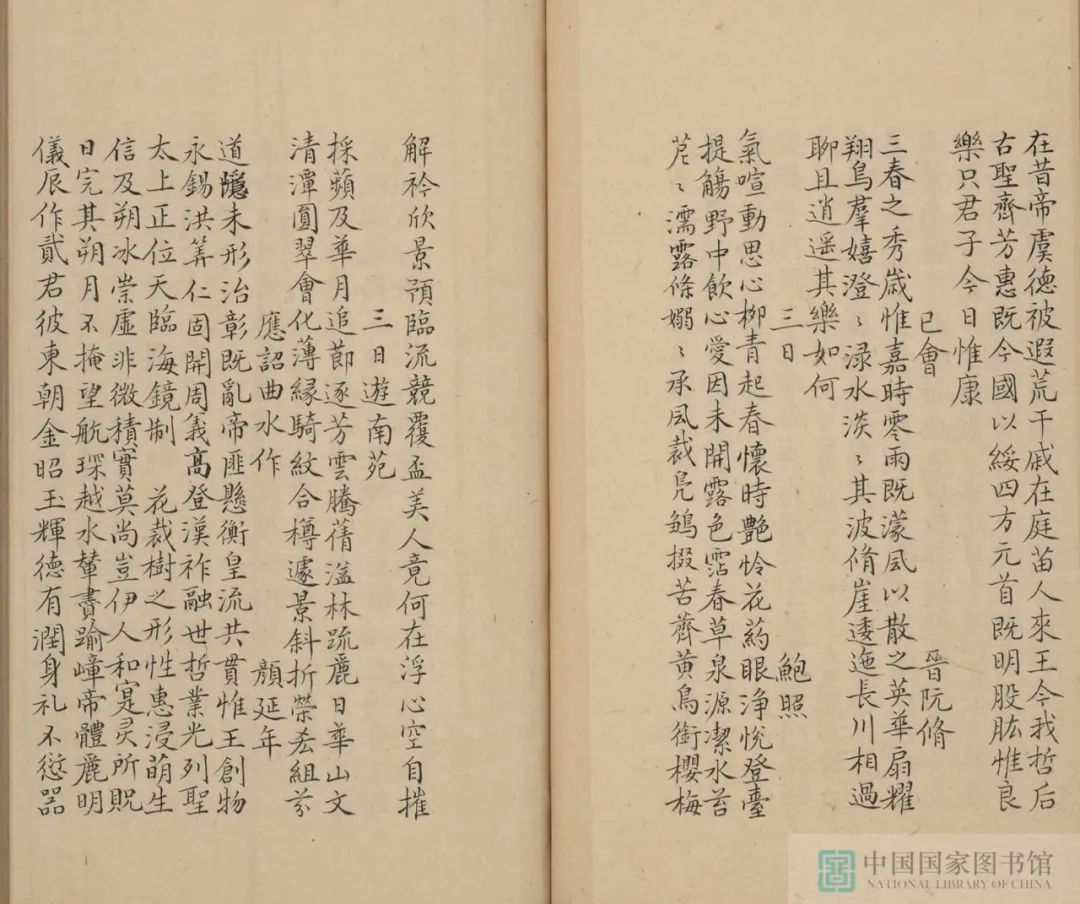 在昔帝虞德被遐荒干戚在庭苗人來王今我哲后
古聖齊芳惠既今國以綏四方元首既明股肱惟良
樂只君子今日惟康
巳會 晉阮脩
三春之秀歲惟嘉時零雨既濛風以散之英華扇耀
翔鳥羣嬉澄〻淥水淡〻其波脩崖逶迤長川相過
聊且逍遥其樂如何
三日 鮑照
氣暄動思心柳青起春懷時艷怜花葯眼淨悅登臺
提觴野中飲心愛因未開露色霑春草泉源潔水苔
苨〻濡露條嫋〻承風裁鳧鶵掇苦薺黄鳥銜櫻梅
解衿欣景預臨流競覆盃美人竟何在浮心空自摧
三日遊南苑
採蘋及華月追節逐芳雲騰蒨溢林疏麗日華山文
清潭圓翠會化薄緣騎紋合樽遽景斜折榮忝組芬
應詔曲水作 顏延年
道隱未形治彰既亂帝匪懸衡皇流共貫惟王創物
永錫洪筭仁固開周義高登漢祚融世哲業光列聖
太上正位天臨海鏡制 花裁樹之形性惠浸萌生
信及朔冰崇虛非微積實莫尚豈伊人和寔灵所貺
日完其朔月不掩望航琛越水輦賮踰嶂帝體麗明
儀辰作貳君彼東朝金昭玉輝德有潤身礼不愆器
中国国家图书馆
NATIONAL LIBRARY OF CHINA